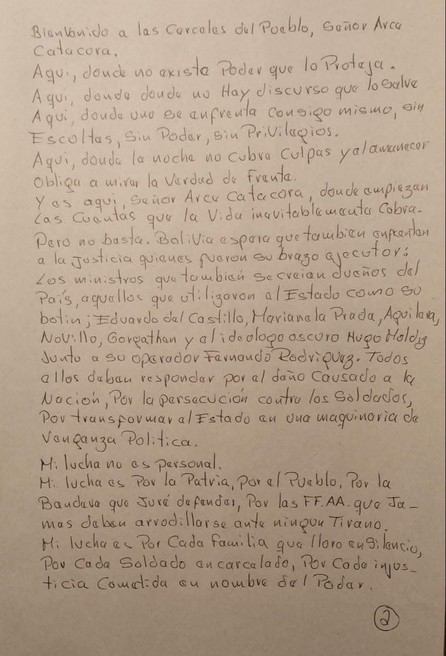 Bienvenido a las Carceles del Pueblo, Señor Arce
Catacora.
Aqui, donde no existe Poder que lo Proteja.
Aqui, donde donde no Hay discurso que lo Salve
Aqui, donde uno se enfrenta consigo mismo, sin
Escoltas, Sin Poder, sin Privilegios.
Aqui, donde la noche no cubre Culpas y el amanecer
Obliga a mirar la Verdad de Frente.
Y es aqui, Señor Arce Catacora, donde empiezan
Las Cuentas que la Vida inevitablemente Cobra.
Pero no basta. Bolivia espera que tambien enfrenten
a la Justicia quienes fueron su brazo ejecutor:
Los ministros que tambien se creian dueños del
País, aquellos que utilizaron al Estado como su
botin; Eduardo del Castillo, Marianela Prada, Aguilera,
Novillo, Gorgathen y al ideologo oscuro Hugo Moldiz
Junto a su operador Fernando Rodriguez. Todos
ellos deben responder por el daño Causado a la
Nación, Por la persecución contra los Soldados,
Por transformar al Estado en una maquinaria de
Venganza Politica.
Mi lucha no es personal.
Mi lucha es Por la Patria, por el Pueblo, Por la
Bandera que Juré defender, Por las FF.AA. que Ja-
mas deben arrodillarse ante ningun Tirano.
Mi lucha es Por Cada Familia que lloro en Silencio,
Por Cada Soldado encarcelado, Por Cada injus-
ticia Cometida en nombre del Poder.
2